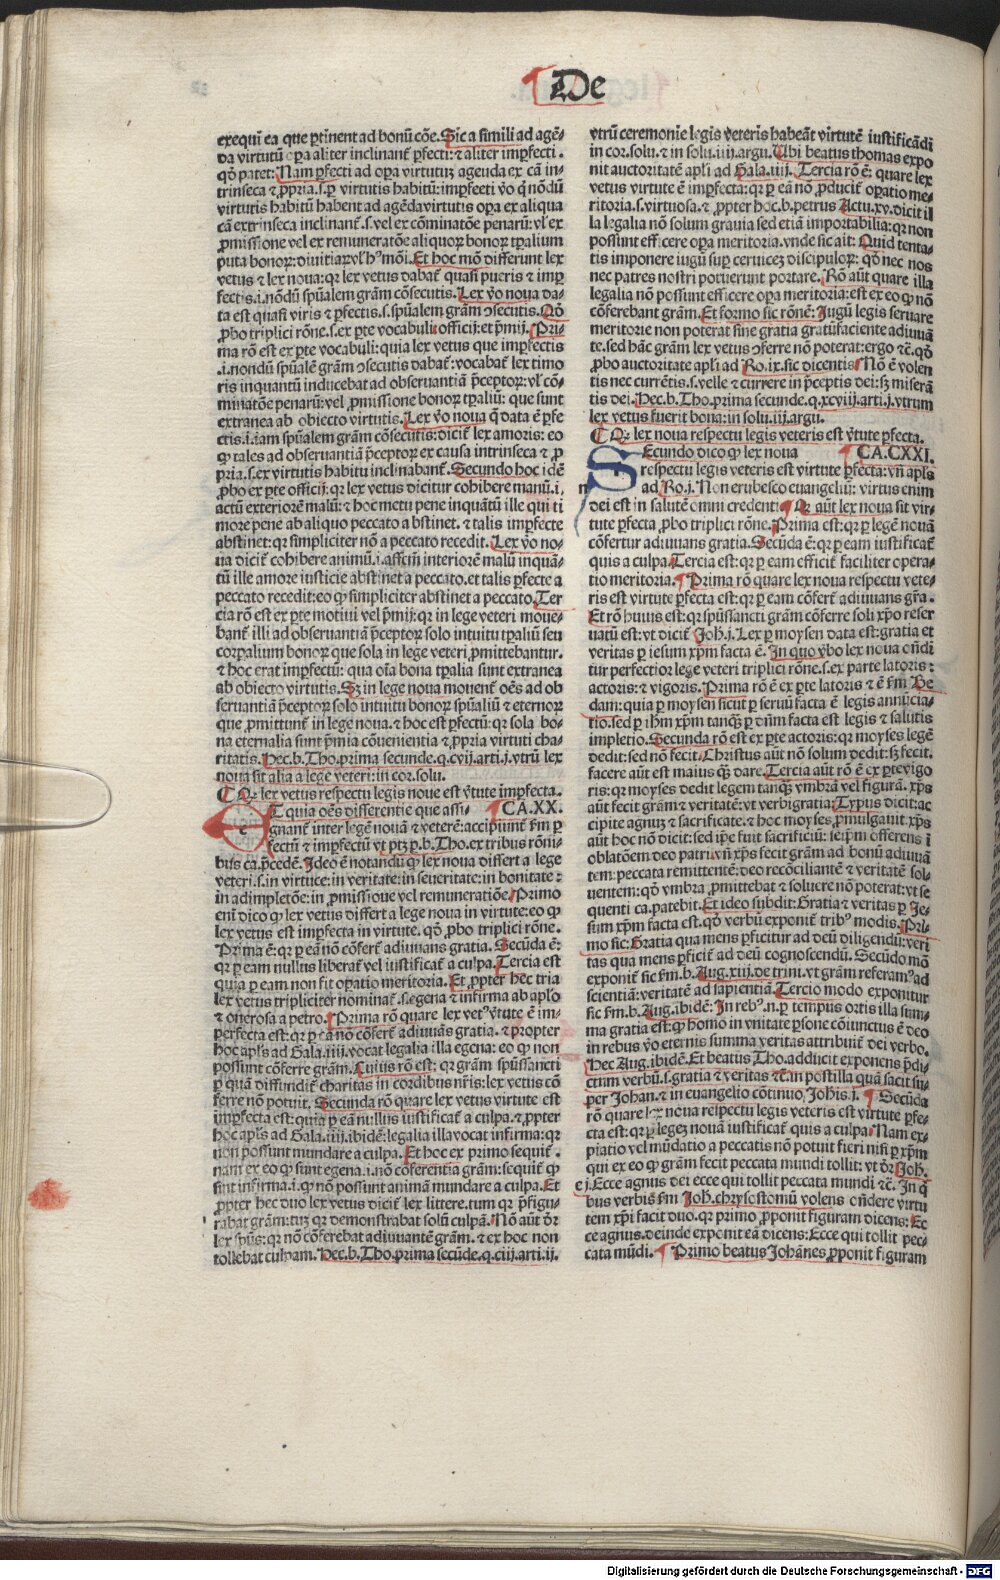 De
exequũ ea que ꝑtinent ad bonũ cõe. Sic a simili ad agẽ-
da virtutũ oꝑa aliter inclinant᷑ ꝑfecti: ⁊ aliter imꝑfecti.
qḋ patet: Nam ꝑfecti ad oꝑa virtutuꝫ agenda ex cã in-
trinseca ⁊ ꝓpria. s. ꝑ virtutis habitũ: imꝑfecti ṽo q̇ nõdũ
virtutis habitũ habent ad agẽda virtutis oꝑa ex aliqua
cã extrinseca inclinant᷑. s. vel ex cõminatõe penarũ: vl̓ ex
ꝓmissione vel ex remuneratõe aliquoꝝ bonoꝝ tꝑalium
puta bonoꝝ: diuitiaꝝ vl̓ hꝰmõi. Et hoc mõ differunt lex
vetus ⁊ lex noua: qꝛ lex vetus dabat᷑ quasi pueris ⁊ imꝑ
fectis. i. nõdũ spũalem grãm cõsecutis. Lex ṽo noua da-
ta est quasi viris ⁊ ꝑfectis. s. spũalem grãm ↄsecutis. Qḋ
ꝓbo triplici rõne. s. ex ꝑte vocabuli officij: et p̃mij. Pri-
ma rõ est ex ꝑte vocabuli: quia lex vetus que imꝑfectis
.i. nondũ spũalẽ grãm ↄsecutis dabat᷑: vocabat᷑ lex timo
ris inquantũ inducebat ad obseruantiã p̃ceptoꝝ: vl̓ cõ-
minatõe penarũ: vel ꝓmissione bonoꝝ tꝑaliũ: que sunt
extranea ab obiecto virtutis. Lex ṽo noua q̃ data ẽ ꝑfe
ctis. i. iam spũalem grãm cõsecutis: dicit᷑ lex amoris: eo
ꝙ tales ad obseruantiã p̃ceptoꝝ ex causa intrinseca ⁊ ꝓ
pria. s. ex virtutis habitu inclinabant᷑. Secundo hoc idẽ
ꝓbo ex ꝑte officij: qꝛ lex vetus dicitur cohibere manũ. i.
actũ exteriorẽ malũ: ⁊ hoc metu pene inquãtũ ille qui ti
more pene ab aliquo peccato abstinet. ⁊ talis imꝑfecte
abstinet: qꝛ simpliciter nõ a peccato recedit. Lex ṽo no-
ua dicit᷑ cohibere animũ. i. affectũ interiorẽ malũ inquã-
tũ ille amore iusticie abstinet a peccato. et talis ꝑfecte a
peccato recedit: eo ꝙ simpliciter abstinet a peccato. Ter
cia rõ est ex ꝑte motiui vel p̃mij: qꝛ in lege veteri moue-
bant᷑ illi ad obseruantiã p̃ceptoꝝ solo intuitu tꝑaliũ seu
corꝑalium bonoꝝ que sola in lege veteri ꝓmittebantur.
⁊ hoc erat imꝑfectũ: qua oĩa bona tꝑalia sunt extranea
ab obiecto virtutis. Sꝫ in lege noua mouent᷑ oẽs ad ob
seruantiã p̃ceptoꝝ solo intuitu bonoꝝ spũaliũ ⁊ eternoꝝ
que ꝓmittunt᷑ in lege noua. ⁊ hoc est ꝑfectũ: qꝛ sola bo-
na eternalia sunt p̃mia cõuenientia ⁊ ꝓpria virtuti cha-
ritatis. Hec. b. Tho. prima secunde. q. cvij. arti. j. vtrũ lex
noua sit alia a lege veteri: in cor. solu.
¶ Qꝛ lex vetus respectu legis noue est v̓tute imꝑfecta.
Et quia oẽs differentie que assi- ¶ CA. XX.
gnant᷑ inter legẽ nouã ⁊ veterẽ: accipiunt᷑ ẜm ꝑ
fectũ ⁊ imꝑfectũ vt ptꝫ ꝑ. b. Tho. ex tribus rõni-
bus ca. p̃cedẽ. Ideo ẽ notandũ ꝙ lex noua differt a lege
veteri. s. in virtute: in veritate: in seueritate: in bonitate:
in adimpletõe: in ꝓmissione vel remuneratiõe. Primo
enĩ dico ꝙ lex vetus differt a lege noua in virtute: eo ꝙ
lex vetus est imꝑfecta in virtute. qḋ ꝓbo triplici rõne.
Prima ẽ: qꝛ ꝑ eã nõ cõfert᷑ adiuuans gratia. Secũda ẽ:
qꝛ ꝑ eam nullus liberat᷑ vel iustificat᷑ a culpa. Tercia est
quia ꝑ eam non fit oꝑatio meritoria. Et ꝓpter hec tria
lex vetus tripliciter nominat᷑. s. egena ⁊ infirma ab apl̓o
⁊ onerosa a petro. Prima rõ quare lex vetꝰ v̓tute ẽ im-
perfecta est: qꝛ ꝑ eã nõ cõfert᷑ adiuuãs gratia. ⁊ propter
hoc apl̓s ad Gala. iiij. vocat legalia illa egena: eo ꝙ non
possunt cõferre grãm. Cuius rõ est: qꝛ grãm spũssancti
ꝑ quã diffundit᷑ charitas in cordibus nr̃is: lex vetus cõ
ferre nõ potuit. Secunda rõ quare lex vetus virtute est
imꝑfecta est: quia ꝑ eã nullus iustificat᷑ a culpa. ⁊ ꝓpter
hoc apl̓s ad Gala. iiij. ibidẽ: legalia illa vocat infirma: qꝛ
non possunt mundare a culpa. Et hoc ex primo sequit᷑.
nam ex eo ꝙ sunt egena. i. nõ cõferentia grãm: sequit᷑ ꝙ
sint infirma. i. ꝙ nõ possunt animã mundare a culpa. Et
ꝓpter hec duo lex vetus dicit᷑ lex littere. tum qꝛ p̃figu-
rabat grãm: tuꝫ qꝛ demonstrabat solũ culpã. Nõ aũt dr̃
lex spũs: qꝛ nõ cõferebat adiuuantẽ grãm. ⁊ ex hoc non
tollebat culpam. Hec. b. Tho. prima secũde. q. ciij. arti. ij.
vtrũ ceremonie legis veteris habeãt virtutẽ iustificãdi
in cor. solu. ⁊ in solu. iiij. argu. Ubi beatus thomas expo
nit auctoritatẽ apl̓i ad Gala. iiij. Tercia rõ ẽ: quare lex
vetus virtute ẽ imꝑfecta: qꝛ ꝑ eã nõ ꝓducit᷑ oꝑatio me-
ritoria. s. virtuosa. ⁊ ꝓpter hoc. b. petrus Actu. xv. dicit il
la legalia nõ solum grauia sed etiã importabilia: qꝛ non
possunt efficere oꝑa meritoria. vnde sic ait: Quid tenta-
tis imponere iugũ suꝑ ceruiceꝫ discipuloꝝ: qḋ nec nos
nec patres nostri potuerunt portare. Rõ aũt quare illa
legalia nõ possunt efficere oꝑa meritoria: est ex eo ꝙ nõ
cõferebant grãm. Et formo sic rõnẽ: Jugũ legis seruare
meritorie non poterat sine gratia gratũfaciente adiuuã
te. sed hãc grãm lex vetus ↄferre nõ poterat: ergo ⁊c̃. qḋ
ꝓbo auctoritate apl̓i ad Ro. ix. sic dicentis: Nõ ẽ volen
tis nec currẽtis. s. velle ⁊ currere in p̃ceptis dei: sꝫ miserã
tis dei. Hec. b. Tho. prima secunde. q. xcviij. arti. j. vtrum
lex vetus fuerit bona: in solu. iij. argu.
¶ Qꝛ lex noua respectu legis veteris est v̓tute ꝑfecta.
Secundo dico ꝙ lex noua ¶ CA. CXXI.
respectu legis veteris est virtute ꝑfecta: vñ apl̓s
ad Ro. j. Non erubesco euangeliũ: virtus enim
dei est in salutẽ omni credenti. Qꝛ aũt lex noua sit vir-
tute ꝑfecta ꝓbo triplici rõne. Prima est: qꝛ ꝑ legẽ nouã
cõfertur adiuuans gratia. Secũda ẽ: qꝛ ꝑ eam iustificat᷑
quis a culpa. Tercia est: qꝛ ꝑ eam efficit᷑ faciliter opera-
tio meritoria. ¶ Prima rõ quare lex noua respectu vete-
ris est virtute ꝑfecta est: qꝛ ꝑ eam cõfert᷑ adiuuans gr̃a.
Et rõ huius est: qꝛ spũssancti grãm cõferre soli xp̃o reser
uatũ est: vt dicit᷑ Joh. j. Lex ꝑ moysen data est: gratia et
veritas ꝑ iesum xp̃m facta ẽ. In quo ṽbo lex noua on̄di
tur perfectior lege veteri triplici rõne. s. ex parte latoris:
actoris: ⁊ vigoris. Prima rõ ẽ ex ꝑte latoris ⁊ ẽ ẜm Be
dam: quia ꝑ moysen sicut ꝑ seruũ facta ẽ legis annũcia-
tio. sed ꝑ ihm xp̃m tanq̃ꝫ ꝑ dñm facta est legis ⁊ salutis
impletio. Secunda rõ est ex ꝑte actoris: qꝛ moyses legẽ
dedit: sed nõ fecit. Christus aũt nõ solum dedit: sꝫ fecit.
facere aũt est maius q̃ꝫ dare. Tercia aũt rõ ẽ ex ꝑte vigo
ris: qꝛ moyses dedit legem tanq̃ꝫ vmbrã vel figurã. xp̃s
aũt fecit grãm ⁊ veritatẽ: vt verbigratia: Typus dicit: ac
cipite agnuꝫ ⁊ sacrificate. ⁊ hoc moyses ꝓmulgauit. xp̃s
aũt hoc nõ dicit: sed ip̃e fuit sacrificiũ: seip̃m offerens i
oblatõem deo patri. vñ xp̃s fecit grãm ad bonũ adiuuã
tem: peccata remittentẽ: deo recõciliantẽ ⁊ veritatẽ sol-
uentem: qḋ vmbra ꝓmittebat ⁊ soluere nõ poterat: vt se
quenti ca. patebit. Et ideo subdit: Gratia ⁊ veritas ꝑ Je-
sum xp̃m facta est. qḋ verbũ exponit᷑ tribꝰ modis. Pri-
mo sic: Gratia qua mens ꝑficitur ad deũ diligendũ: veri
tas qua mens ꝑficit᷑ ad deũ cognoscendũ. Secũdo mõ
exponit᷑ sic ẜm. b. Aug. xiij. de trini. vt grãm referamꝰ ad
scientiã: veritatẽ ad sapientiã. Tercio modo exponitur
sic ẜm. b. Aug. ibidẽ: In rebꝰ. n. ꝑ tempus ortis illa sum-
ma gratia est: ꝙ homo in vnitate ꝑsone cõiunctus ẽ deo
in rebus ṽo eternis summa veritas attribuit᷑ dei verbo.
Hec Aug. ibidẽ. Et beatus Tho. adducit exponens p̃di-
ctum verbũ. s. gratia ⁊ veritas ⁊c̃. in postilla quã facit su-
per Johan. ⁊ in euangelio cõtinuo, Johis. j. ¶ Secũda
rõ quare lex noua respectu legis veteris est virtute ꝑfe-
cta est: qꝛ ꝑ legeꝫ nouã iustificat᷑ quis a culpa. Nam ex-
piatio vel mũdatio a peccatis nõ potuit fieri nisi ꝑ xp̃m
qui ex eo ꝙ grãm fecit peccata mundi tollit: vt dr̃ Joh.
j. Ecce agnus dei ecce qui tollit peccata mundi ⁊c̃. In q̇
bus verbis ẜm Joh. chrysostomũ volens on̄dere virtu
tem xp̃i facit duo. qꝛ primo ꝓponit figuram dicens: Ec
ce agnus. deinde exponit eã dicens: Ecce qui tollit pec-
cata mũdi. ¶ Primo beatus Johãnes ꝓponit figuram
Digitalisierung gefördert durch die Deutsche Forschungsgemeinschaft - DFG